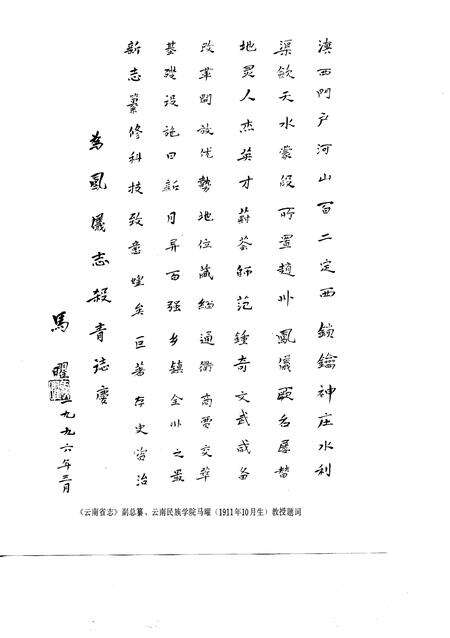 滇西門户河山百二定西鎖鑰神庄水利
渠飲天水蒙段所置趙州鳳儀厥名屢替
地灵人杰英才蔚荟師范鍾奇文武咸备
改革開放优勢地位藏缅通衢商賈交萃
基礎設施日新月异百强乡镇全州之最
新志纂修科技致意煌矣巨著存史資治
為鳳儀志殺青誌慶
馬曜
一九九六年三月
《云南省志》副总纂、云南民族学院马曜（1911年10月生）教授题词